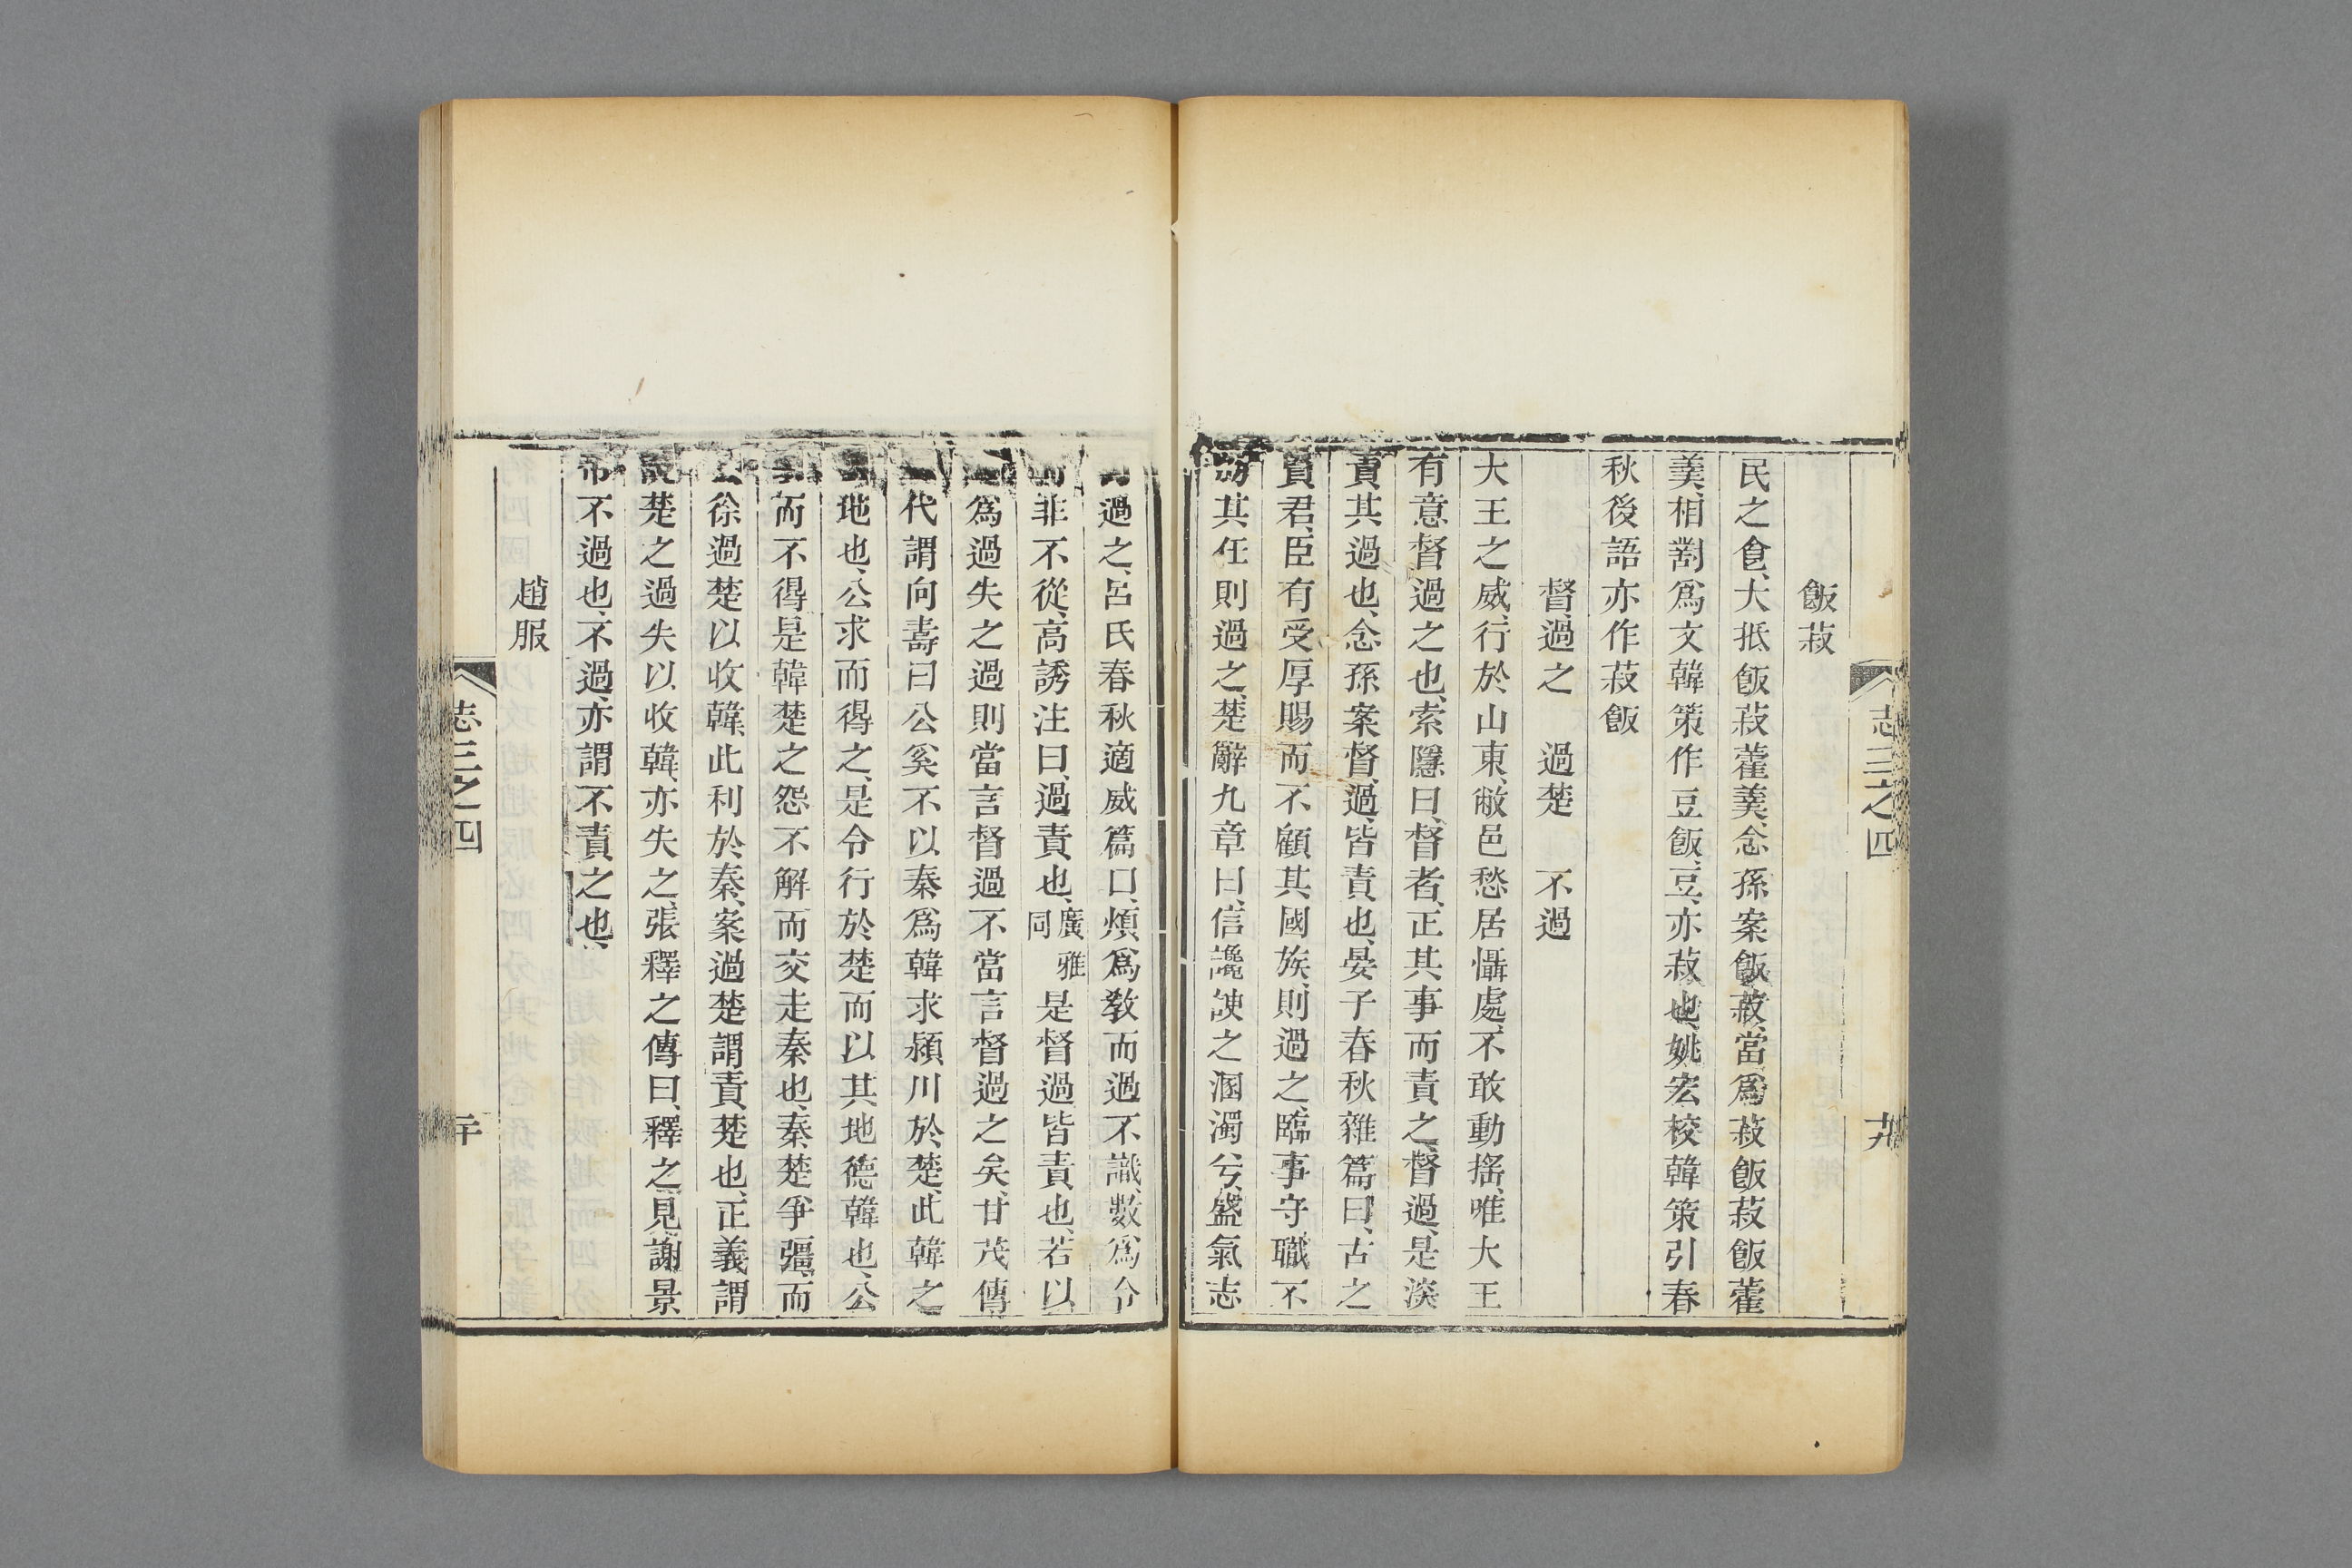 志三之四
飯菽
民之食、大抵飯菽藿羹、念孫案飯菽、當爲菽飯、菽飯藿
羹、相對爲文、韓策作豆飯、豆、亦菽也、姚宏校韓策引春
秋後語亦作菽飯
督過之 過楚 不過
大王之威、行於山東、敝邑愁居懾處、不敢動搖、唯大王
有意督過之也、索隱曰、督者、正其事而責之、督過、是㴱
責其過也、念孫案督、過、皆責也、晏子春秋雜篇曰、古之
賢君、臣有受厚賜而不顧其國族、則過之、臨事守職不
勝其任則過之、楚辭九章曰、信讒諛之溷濁兮、盛氣志
過之、呂氏春秋適威篇曰、煩爲敎而過不識、數爲令
非不從、高誘注曰、過責也、廣雅同 是督過皆責也、若以
爲過失之過則當言督過不當言督過之矣、甘茂傳
代謂向壽曰公奚不以秦爲韓求潁川於楚、此韓之
地也、公求而得之、是令行於楚而以其地德韓也、公
而不得是韓楚之怨不解而交走秦也、秦楚爭彊、而
徐過楚以收韓、此利於秦、案過楚謂責楚也、正義謂
說楚之過失以收韓、亦失之、張釋之傳曰、釋之見謝景
帝不過也、不過、亦謂不責之也、
趙服
志三之四